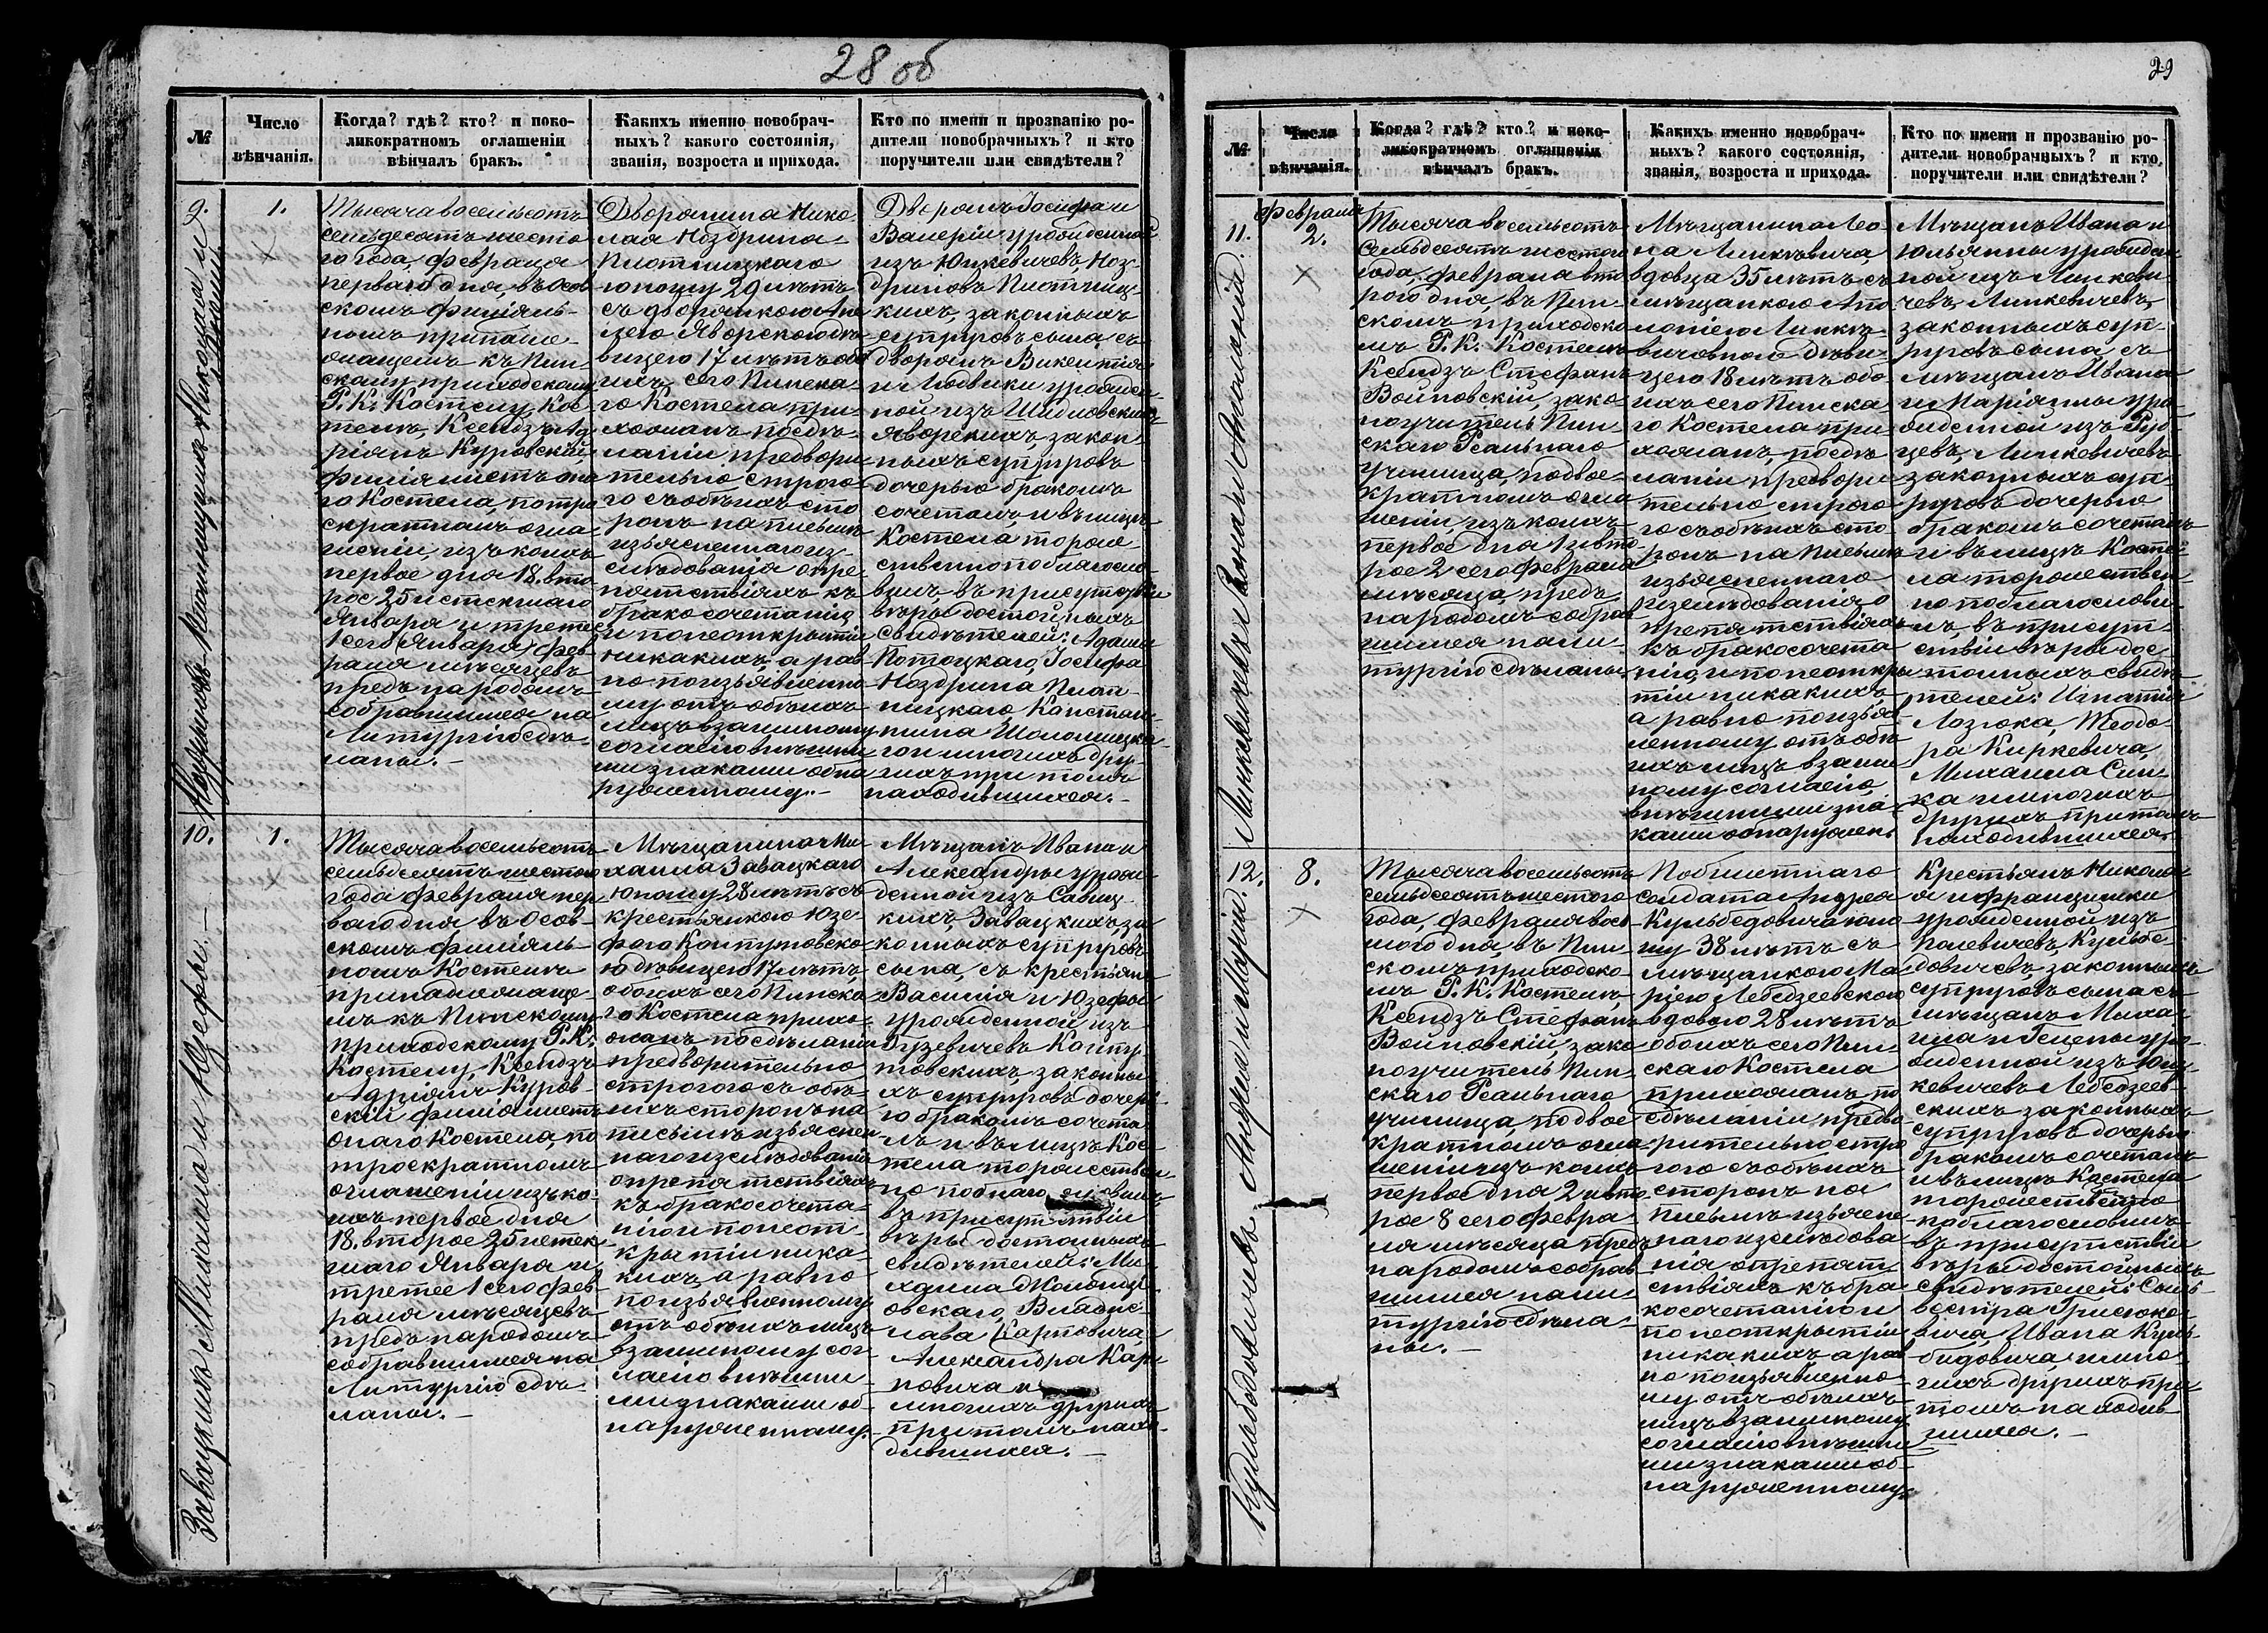 28 об
№
Число
вѣнчанія.
Когда? гдѣ? кто? и поко-
ликократномъ оглашеніи
вѣнчалъ бракъ.
Какихъ именно новобрач-
ныхъ? какого состоянія,
званія, возроста и прихода.
Кто по имени и прозванію ро-
дители новобрачныхъ? и кто
поручители или свидѣтели?
9.
1.
Тысяча восемьсотъ
семьдесятъ шесто
го года, февраля
перваго дня, въ Осов
скомъ филіяль-
номъ принадле-
жащемъ къ Пин-
скому приходскому
Р. К. Костелу, Кос
телѣ, Ксендзъ Ад
ріянъ Куровскій,
филіялистъ она
го Костела, по тро
екратномъ огла
шеніи, изъ коихъ
первое дня 18. вто
рое 25 истекшаго
Января и третее
1 сего Января фев
раля мѣсяцевъ
предъ народомъ
собравшимся на
Литургію сдѣ-
ланы.-
Дворянина Нико
лая Ноздрина-
Плотницкаго
юношу 29 лѣтъ
съ дворянкою Ане
лею Яворскою дѣ
вицею 17 лѣтъ обо
ихъ сего Пинска-
го Костела при-
хожанъ, по сдѣ-
ланіи предвори
тельно строго-
го съ обѣихъ сто
ронъ на письмѣ
изъясненнаго из-
слѣдованія о пре-
пятствіяхъ къ
бракосочетанію
и по неоткрытіи
никакихъ, а рав
но по изъявленно
му отъ обѣихъ
лицъ взаимному
согласію внѣшни
ми знаками обна
руженному.-
Дворянъ Іосифа и
Валеріи урожденной
изъ Юшкевичевъ, Ноз-
дриновъ Плотниц-
кихъ, законныхъ
супруговъ сына, съ
дворянъ Викентія
и Людвики урожден-
ной изъ Шидловскихъ
Яворскихъ, закон-
ныхъ супруговъ
дочерью бракомъ
сочеталъ, и въ лицѣ
Костела торже-
ственно поблагосло
вилъ въ присутствіи
вѣры достойныхъ
свидѣтелей: Адама
Потоцкаго, Іосифа
Ноздрина Плот-
ницкаго, Констан-
тина Шоломицка-
го и многихъ дру-
гихъ при томъ
находившихся.-
Ноздриновъ Плотницкихъ Николая и
Анелии
10.
1.
Тысяча восемьсотъ
семьдесятъ шестого
года февраля пер
ваго дня, въ Осов-
скомъ филіяль-
номъ Костелѣ
принадлежаще-
мъ къ Пинскому
приходскому Р. К.
Костелу, Ксендзъ
Адріянъ Куров-
скій филіялистъ
онаго Костела, по
троекратномъ
оглашеніи, изъ ко-
ихъ первое дня
18. второе 25 истек
шаго Января и
третее 1 сего фев
раля мѣсяцевъ
предъ народомъ
собравшимся на
Литургію сдѣ-
ланы.-
Мѣщанина Ми
хаила Завацкаго
юношу 28 лѣтъ съ
крестьянкою Юзе-
фою Контутовско
ю дѣвицею 17 лѣтъ,
обоихъ сего Пинска
го Костела прихо-
жанъ по сдѣланіи
предворительно
строгого съ обѣ-
ихъ сторонъ на
письмѣ изъяснен-
наго изслѣдованія
о препятствіяхъ
къ бракосочета-
нію и по неот-
крытіи ника-
кихъ, а равно
по изъявленному
отъ обѣихъ лицъ
взаимному сог-
ласію внѣшни-
ми знаками об-
наруженному.
Мѣщанъ Ивана и
Александры урож-
денной изъ Савиц-
кихъ, Завацкихъ, за
конныхъ супруговъ
сына, съ крестьянъ
Василія и Юзефы
урожденной изъ
Гузевичевъ Конту-
товскихъ, законны
хъ супруговъ дочерь-
ю бракомъ сочета-
лъ и въ лицѣ Кос-
тела торжествен-
но поблагословилъ
въ присутствіи
вѣры достойныхъ
свидѣтелей: Ми-
хаила
овскаго, Владис-
лава Карповича,
Александра Кар-
повича и
многихъ другихъ
при томъ нахо-
дившихся.-
Завацкихъ Михаила и Юзефы.-
29
№
Число
вѣнчанія.
Когда? гдѣ? кто? и поко-
ликократномъ оглашеніи
вѣнчалъ бракъ.
Какихъ именно новобрач-
ныхъ? какого состоянія,
званія, возроста и прихода.
Кто по имени и прозванію ро-
дители новобрачныхъ? и кто
поручители или свидѣтели?
11.
Февраля
2.
Тысяча восемьсотъ
семьдесятъ шестого
года, февраля вто
рого дня, въ Пин-
скомъ приходско-
мъ Р. К. Костелѣ
Ксендзъ Стефанъ
Войновскій, зако-
ноучитель Пин
скаго Реальнаго
училища, по двое-
кратномъ огла
шеніи, изъ коихъ
первое дня 1 и вто
рое 2 сего февраля
мѣсяца, предъ
народомъ собрав
шимся на Ли-
тургію сдѣланы.
Мѣщанина Лео-
на Линкевича
вдовца 35 лѣтъ съ
мѣщанкою Апо
лоніею Линке-
вичовною дѣви-
цею 18 лѣтъ обо-
ихъ сего Пинска
го Костела при-
хожанъ, по сдѣ
ланіи предвори
тельно строго
го съ обѣихъ сто
ронъ на письмѣ
изъясненнаго
изслѣдованія о
препятствіяхъ
къ бракосочета-
нію и по неоткры
тіи никакихъ,
а равно по изъяв
ленному отъ обѣ
ихъ лицъ взаим
ному согласію
внѣшними зна-
ками обнаружен.
Мѣщанъ Ивана и
Юльянны урожден
ной изъ Линкеви-
чевъ, Линкевичевъ,
законныхъ суп-
руговъ сына, съ
мѣщанъ Ивана
и Маріянны уро-
жденной изъ Руд-
цевъ, Линкевичевъ
законныхъ суп-
руговъ дочерью
бракомъ сочеталъ
и въ лицѣ Косте-
ла торжествен-
но поблагослови-
лъ, въ присут-
ствіи вѣры дос-
тойныхъ свидѣ
телей: Игнатія
Лозюка, Теодо-
ра Киркевича,
Михаила Син-
ка и многихъ
другихъ при томъ
находившихся.
Линкевичевъ Леона и Аполоніи.
12.
8.
Тысяча восемьсотъ
семьдесятъ шестого
года, февраля вось
мого дня, въ Пин-
скомъ приходско-
мъ Р. К. Костелѣ
Ксендзъ Стефанъ
Войновскій, зако
ноучитель Пин-
скаго Реальнаго
училища по двое
кратномъ огла-
шеніи изъ коихъ
первое дня 2 и вто
рое 8 сего февра-
ля мѣсяца предъ
народомъ собрав
шимся на Ли-
тургію сдѣла-
ны.-
Побилетнаго
солдата Андрея
Кульбедовича юно
шу 38 лѣтъ съ
мѣщанкою Ма-
ріею Лебедзеевскою
вдовою 28 лѣтъ
обоихъ сего Пин-
скаго Костела
прихожанъ по
сдѣланіи предво
рительно стро
гого съ обѣихъ
сторонъ на
письмѣ изъяснен
наго изслѣдова
нія о препят-
ствіяхъ къ бра
косочетанію и
по неоткрытіи
никакихъ а рав
но по изъявленно
му отъ обѣихъ
лицъ взаимному
согласію внѣшни
ми знаками об-
наруженному.
Крестьянъ Никола
я и Францишки
урожденной изъ
Полевичевъ, Кульбе-
довичевъ, законныхъ
супруговъ сына съ
мѣщанъ Миха-
ила и Гелены уро-
жденной изъ Юш-
кевичевъ Лебедзеев-
скихъ законныхъ
супруговъ дочерью
бракомъ сочеталъ
и въ лицѣ Костела
торжественно
поблагословилъ
въ присутствіи
вѣры достойныхъ
свидѣтелей: Силь-
вестра
Ивана Куль-
бедовича и мно-
гихъ другихъ при
томъ находив
шихся.-
Кульбедовичевъ Андрея и Маріи.